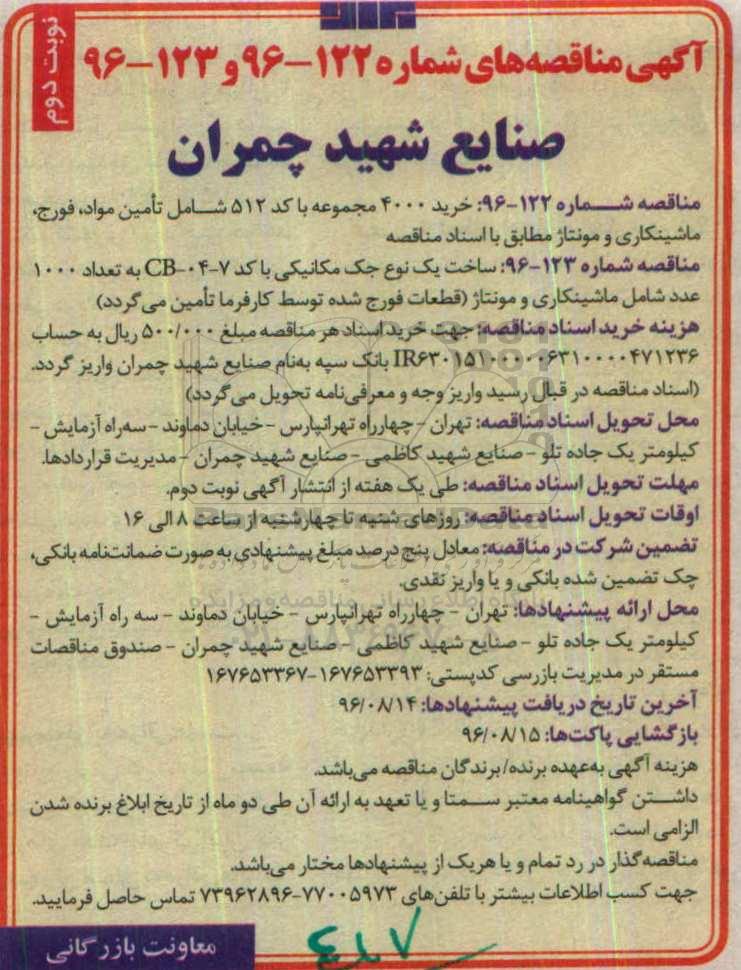 نوبت دوم
آگهی مناقصه‌های شماره ۱۲۲-۹۶ و ۱۲۳-۹۶
صنایع شهید چمران
مناقصه شماره ۱۲۲-۹۶: خرید ۴۰۰۰ مجموعه با کد ۵۱۲ شامل تأمین مواد، فورج،
ماشینکاری و مونتاژ مطابق با اسناد مناقصه
مناقصه شماره ۱۲۳-۹۶: ساخت یک نوع جک مکانیکی با کد CB-۰۴-۷ به تعداد ۱۰۰۰
عدد شامل ماشینکاری و مونتاژ (قطعات فورج شده توسط کارفرما تأمین می‌گردد)
هزینه خرید اسناد مناقصه: جهت خرید اسناد هر مناقصه مبلغ ۵۰۰/۰۰۰ ریال به حساب
بانک سپه به‌نام صنایع شهید چمران واریز گردد.
(اسناد مناقصه در قبال رسید واریز وجه و معرفی‌نامه تحویل می‌گردد)
محل تحویل اسناد مناقصه: تهران - چهارراه تهرانپارس - خیابان دماوند - سه‌راه آزمایش -
کیلومتر یک جاده تلو - صنایع شهید کاظمی - صنایع شهید چمران - مدیریت قراردادها.
مهلت تحویل اسناد مناقصه: طی یک هفته از انتشار آگهی نوبت دوم.
اوقات تحویل اسناد مناقصه: روزهای شنبه تا چهارشنبه از ساعت ۸ الی ۱۶
تضمین شرکت در مناقصه: معادل پنج درصد مبلغ پیشنهادی به صورت ضمانت‌نامه بانکی،
چک تضمین شده بانکی و یا واریز نقدی.
محل ارائه پیشنهادها: تهران - چهارراه تهرانپارس - خیابان دماوند - سه راه آزمایش -
کیلومتر یک جاده تلو - صنایع شهید کاظمی - صنایع شهید چمران - صندوق مناقصات
مستقر در مدیریت بازرسی کدپستی: ۱۶۷۶۵۳۳۹۳-۱۶۷۶۵۳۳۶۷
آخرین تاریخ دریافت پیشنهادها: ۹۶/۰۸/۱۴
بازگشایی پاکت‌ها: ۹۶/۰۸/۱۵
هزینه آگهی به‌عهده برنده/برندگان مناقصه می‌باشد.
داشتن گواهینامه معتبر سمتا و یا تعهد به ارائه آن طی دو ماه از تاریخ ابلاغ برنده شدن
الزامی است.
مناقصه‌گذار در رد تمام و یا هریک از پیشنهادها مختار می‌باشد.
جهت کسب اطلاعات بیشتر با تلفن‌های ۷۷۰۰۵۹۷۳-۷۳۹۶۲۸۹۶ تماس حاصل فرمایید.
معاونت بازرگانی